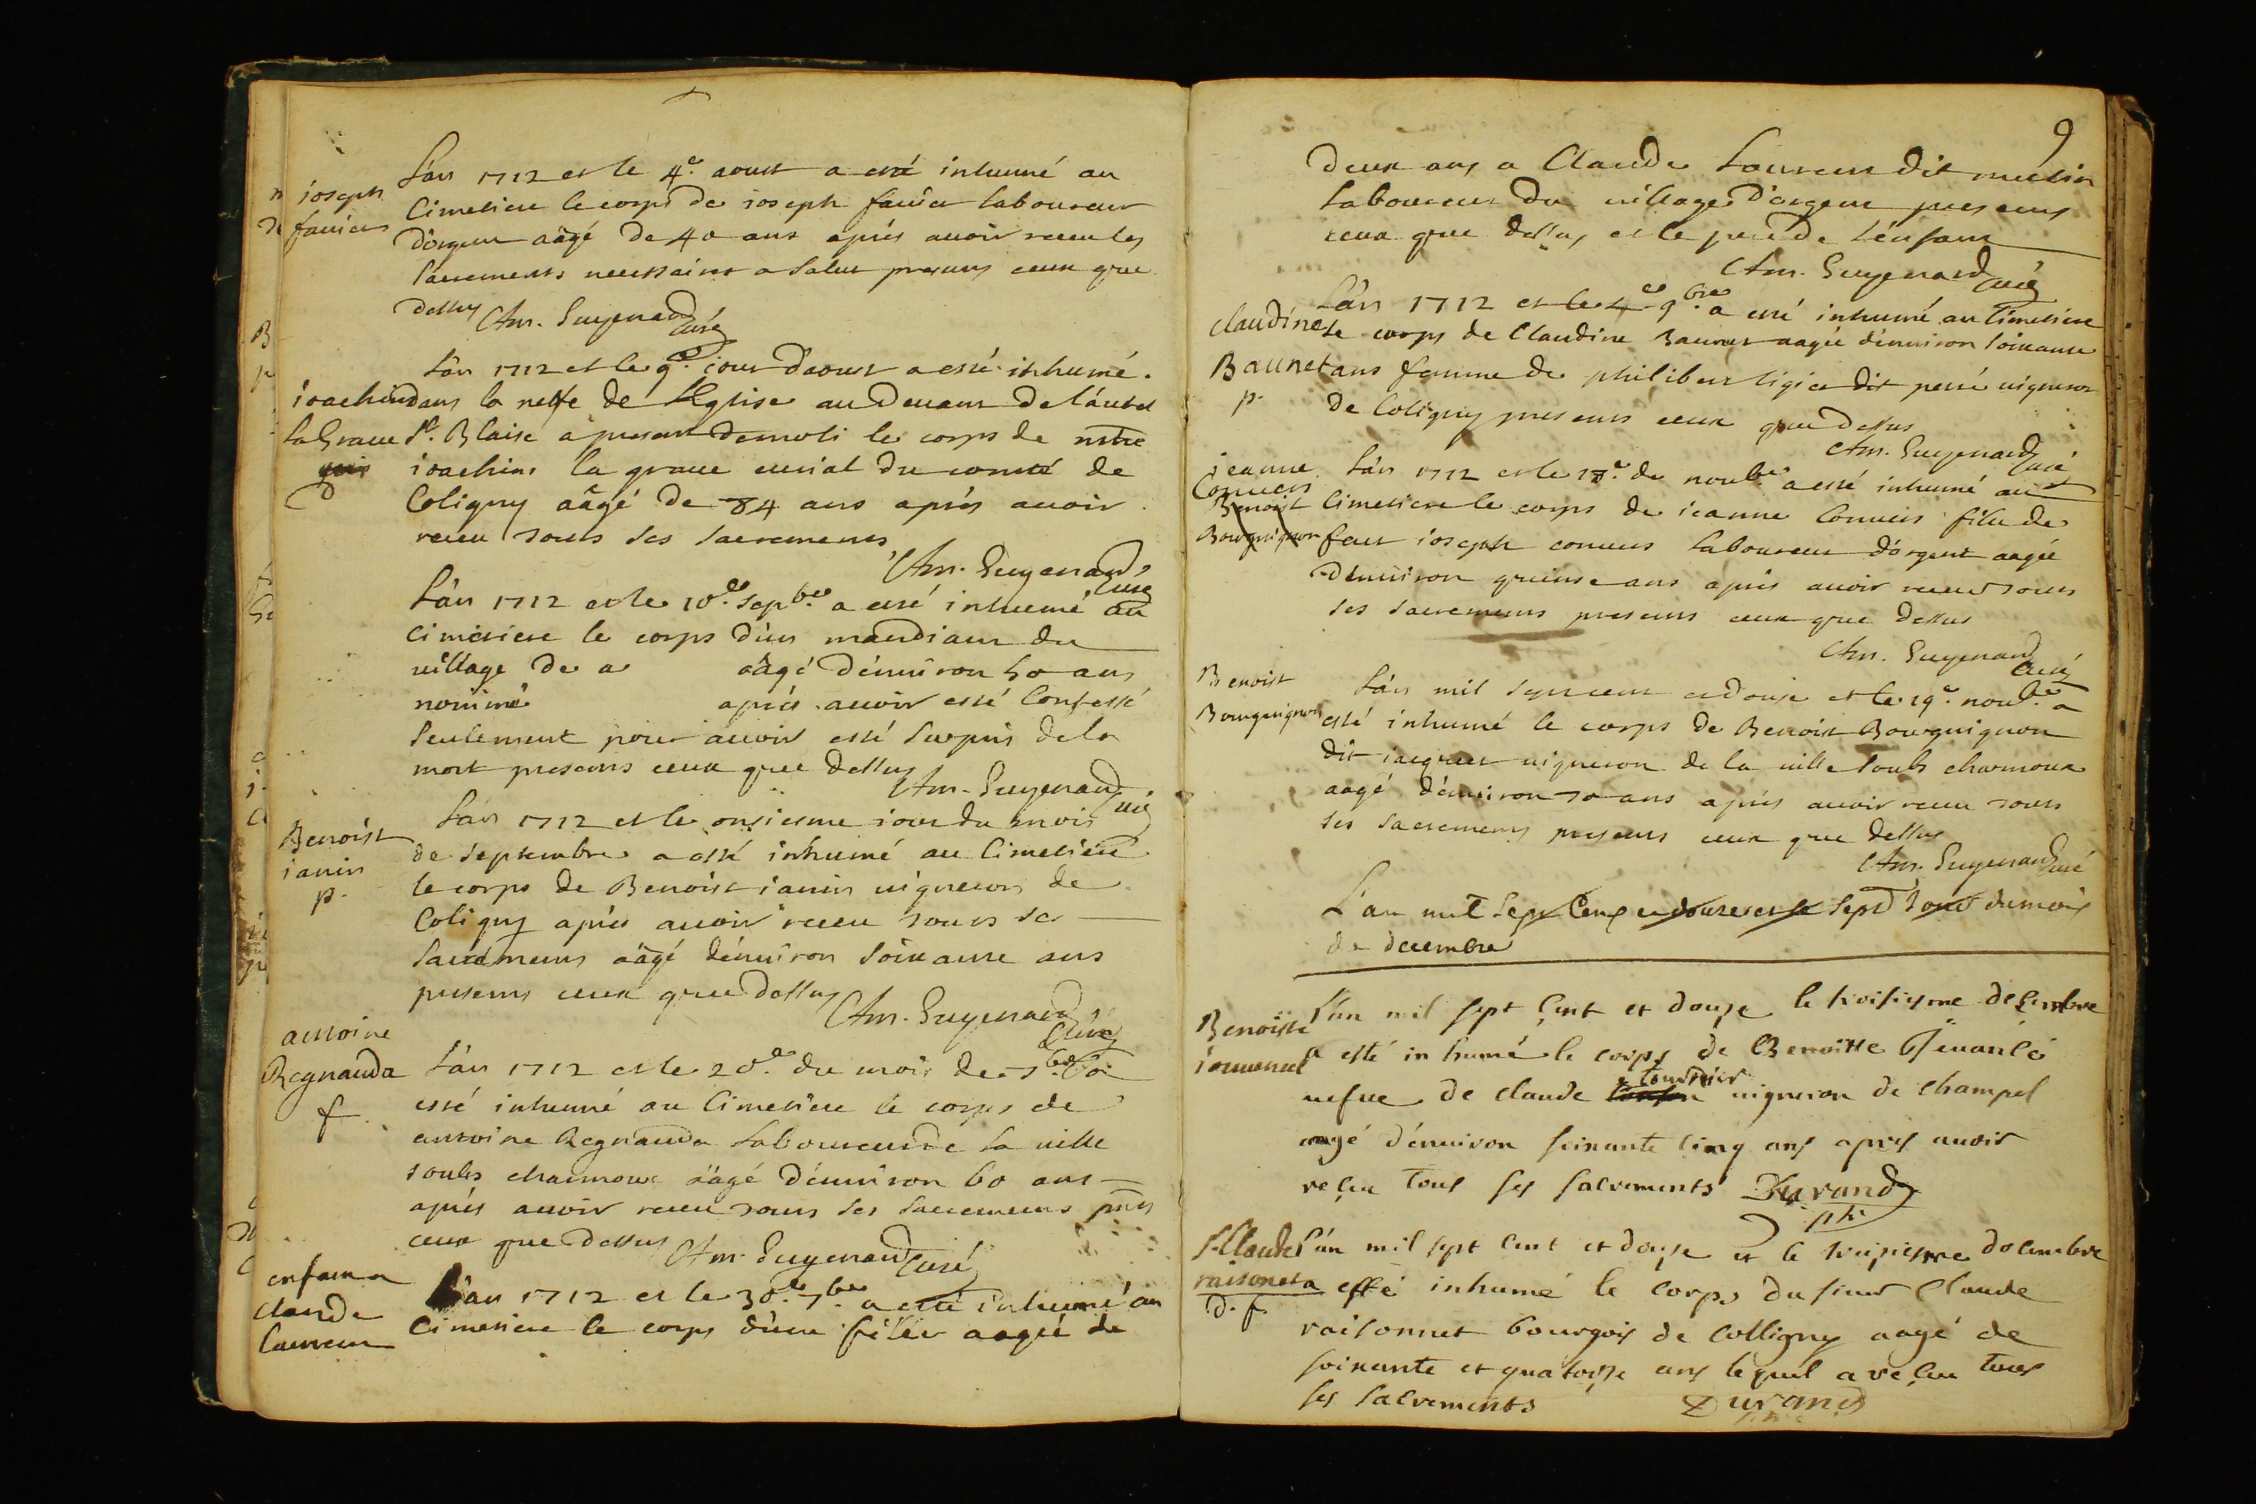 joseph
fauier
L'an 1712 et le 4e. aoust a esté inhumé au
Cimetiere le corps de joseph fauier laboureur
d'orgent aâgé de 40 ans aprés auoir receu les
sacrements necessaires a salut presents ceux que
dessus Am. Guyenard Curé
L'an 1712 et le 9e. jour d'aoust a esté inhumé
joachin
la Graue
D
dans la neffe de l'Eglise au deuant de l'autel
St. Blaise a present demoli le corps de
joachim la graue curial du comté de
Coligny aâgé de 84 ans aprés auoir
receu touts ses sacrements
Am. Guyenard Curé
L'an 1712 et le 10e. sepbre. a esté inhumé au
cimetiere le corps d'un mandiant du
village de a aâgé d'enuiron 50 ans
nommé aprés auoir esté Confessé
seulement pour auoir esté surpris de la
mort presents ceux que dessus
Am. Guyenard Curé
Benoist
janin
p.
L'an 1712 et le onsiesme jour du mois
de septembre a esté inhumé au Cimetiere
le corps de Benoist janin uigneron de
Coligny aprés auoir receu touts ses
sacrements aâgé d'enuiron soixante ans
presents ceux que dessus
Am. Guyenard Curé
antoine
Regnauda
f.
L'an 1712 et le 20e. du mois de 7bre. a
esté inhumé au Cimetiere le corps de
antoine Regnauda laboureur de la uille
soubs charmoux aâgé d'enuiron 60 ans
aprés auoir receu touts ses sacrements pnts
ceux que dessus Am. Guyenard Curé
enfant a
claude
Laurent
L'an 1712 et le 30e. 7bre. a esté inhumé au
Cimetiere le corps d'une fille aagée de
9
deux ans a Claude Laurent dit
laboureur du uillage d'orgent presents
ceux que dessus et le pere de l'enfant
Am. Guyenard Curé
claudine
Baunet
p.
L'an 1712 et le 4e 9bre. a esté inhumé au Cimetiere
le corps de Claudine Baunet aagée d'enuiron soixante
ans femme de philibert ligier dit perré uigneron
de Coligny presents ceux que dessus
Am. Guyenard Curé
jeanne
Conuers
Benoist
Bourguignon
L'an 1712 et le 18e. de noubre a esté inhumé au
Cimetiere le corps de jeanne Conuers fille de
feut joseph conuers laboureur d'orgent aagée
d'enuiron quinse ans aprés auoir receu touts
ses sacrements presents ceux que dessus
Am. Guyenard Curé
Benoist
Bourguignon
L'an mil sept cent et douse et le 19e. noubre. a
esté inhumé le corps de Benoist Bourguignon
dit jacquet uigneron de la uille soubs charmoux
aagé d'enuiron 70 ans aprés auoir receu touts
ses sacrements presents ceux que dessus
Am. Guyenard Curé
L'an mil sept Cent et douze et le sept jour du mois
de decembre
Benoiste
L'an mil sept cent et douze le troisiesme decembre
a esté inhumé le corps de Benoitte
uefue de claude tournier uigneron de champel
aagé d'enuiron soixante cinq ans apres auoir
reçeu tous ses sacrements Durand
Sr Claude
raisonet
d. f
L'an mil sept cent et douze et le treisiesme decembre
a esté inhumé le corps du sieur Claude
raisonnet bourgois de Colligny aagé de
soixante et quatorse ans lequel a reçeu tous
ses sacrements Durand